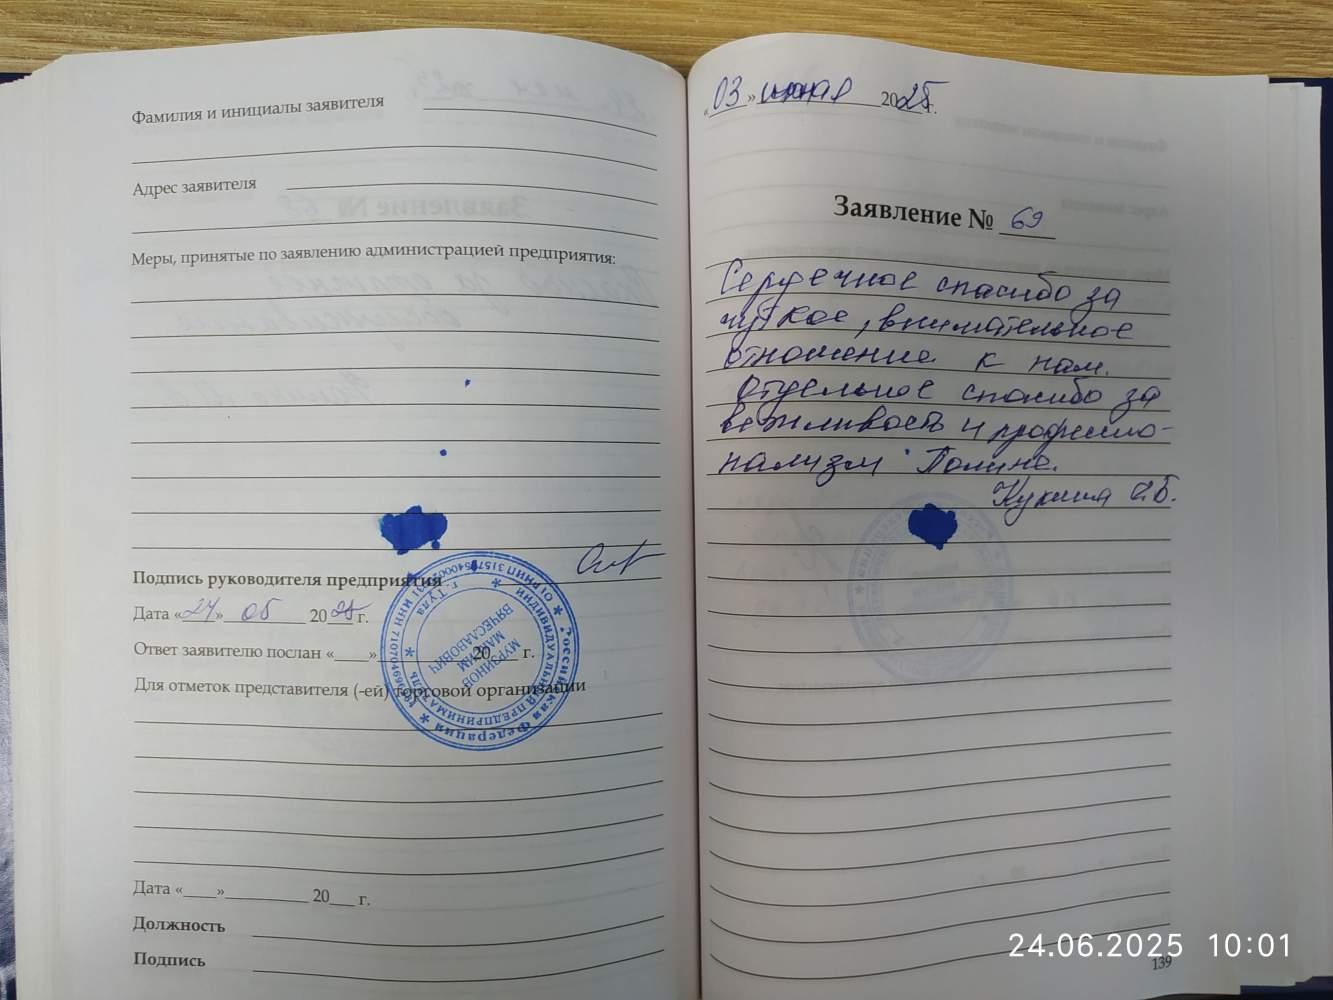 Фамилия и инициалы заявителя
Адрес заявителя
Меры, принятые по заявлению администрацией предприятия:
Подпись руководителя предприятия
Дата «24» 05 2025 г.
Ответ заявителю послан «____» 20___ г.
Для отметок представителя (-ей) торговой организации
Дата «____» 20___ г.
Должность
Подпись
Российская Федерация
ИНДИВИДУАЛЬНЫЙ ПРЕДПРИНИМАТЕЛЬ
г. Тула
МУРЗИНОВ
МАКСИМ
ВЯЧЕСЛАВОВИЧ
«03» июня 2025 г.
Заявление № 69
Сердечное спасибо за
чуткое, внимательное
отношение к нам.
Отдельное спасибо за
вежливость и профессио-
нализм Полине.
139
24.06.2025 10:01